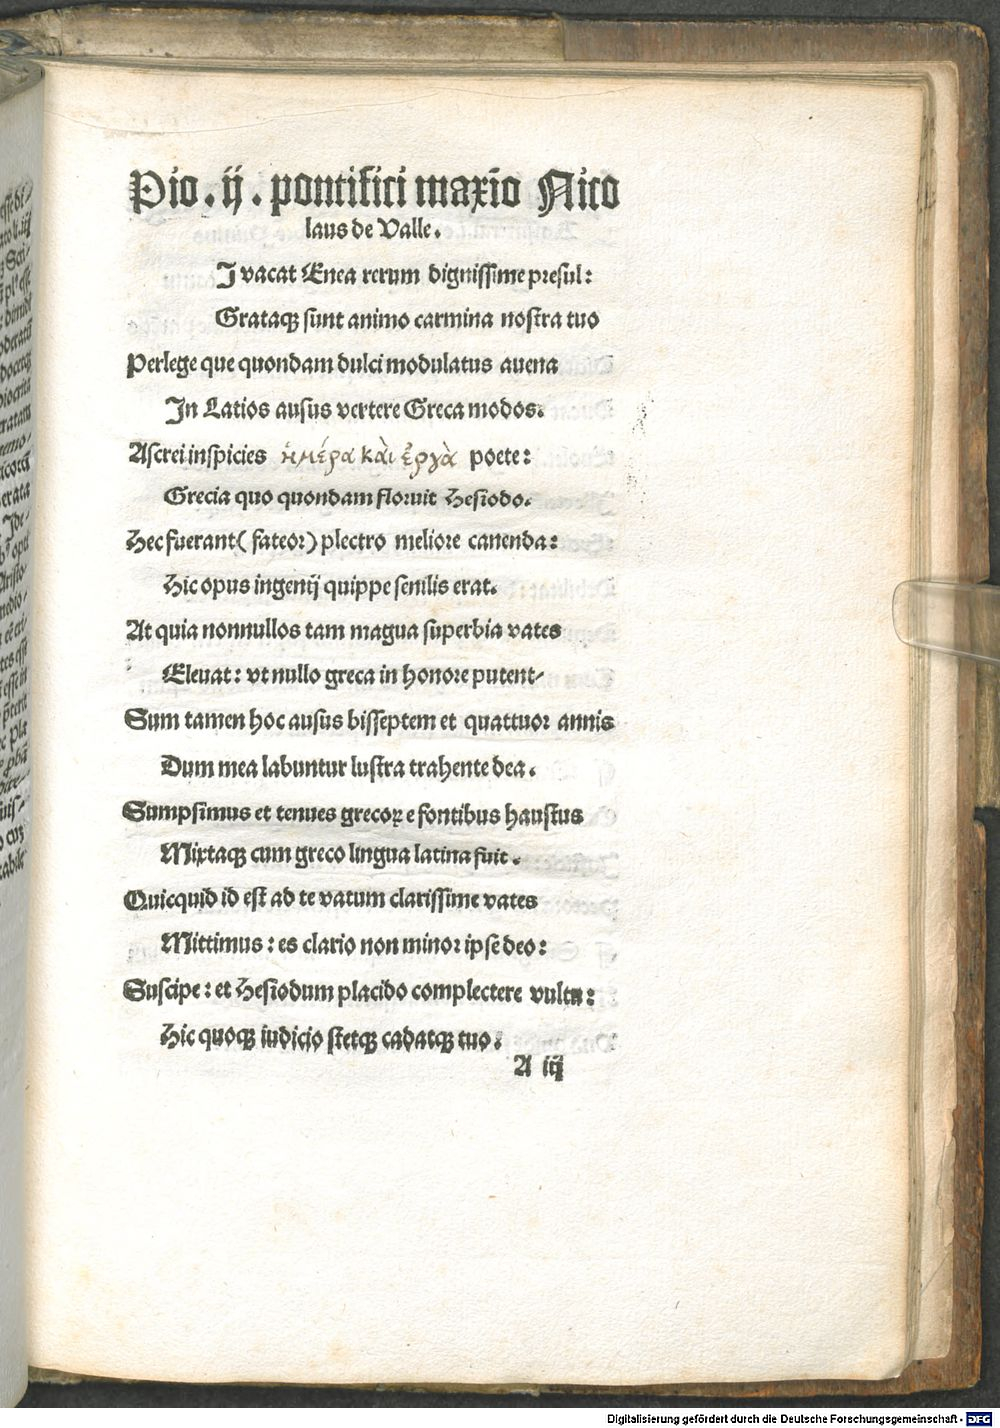 Pio. ij. pontifici maxīo Nico
laus de Valle.
I vacat Enea rerum dignissime presul:
Grataqꝫ sunt animo carmina nostra tuo
Perlege que quondam dulci modulatus auena
In Latios ausus vertere Greca modos.
Ascrei inspicies ἡμέρα κὰι ἔργὰ poete:
Grecia quo quondam floruit Hesiodo.
Hec fuerant( fateor) plectro meliore canenda:
Hic opus ingenij quippe senilis erat.
At quia nonnullos tam magua superbia vates
Eleuat: vt nullo greca in honore putent⁊
Sum tamen hoc ausus bisseptem et quattuor annis
Dum mea labuntur lustra trahente dea.
Sumpsimus et tenues grecoꝝ e fontibus haustus
Mixtaqꝫ cum greco lingua latina fuit.
Quicquid id est ad te vatum clarissime vates
Mittimus: es clario non minor ipse deo:
Suscipe: et Hesiodum placido complectere vultu:
Hic quoqꝫ iudicio stetqꝫ cadatqꝫ tuo:
A iij
Digitalisierung gefördert durch die Deutsche Forschungsgemeinschaft - DFG